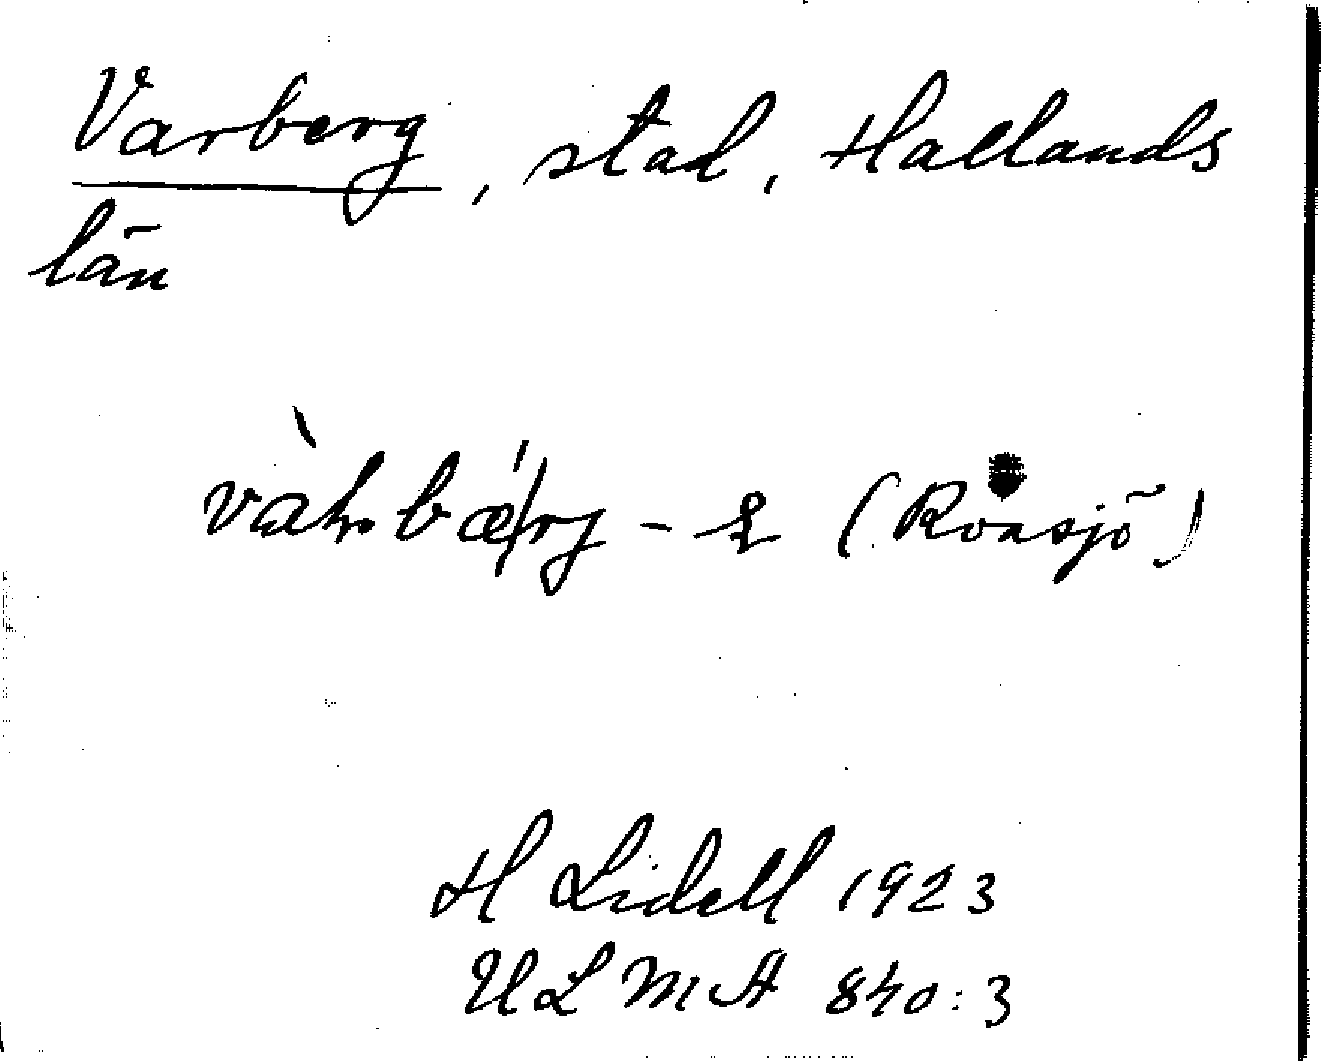 Varberg, stad, Hallands
län
(Roasjö)
H Lidell 1923
ULMA 840:3